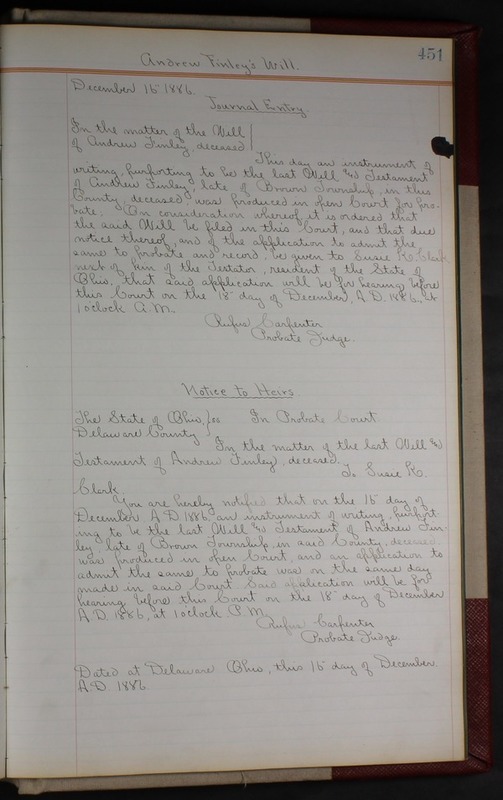 451
Andrew Finley's Will.
December 16" 1886.
Journal Entry.
In the matter of the Will
of Andrew Finley, deceased
This day an instrument of
writing, purporting to be the last Will & Testament
of Andrew Finley, late of Brown Township, in this
County, deceased, was produced in open Court for pro-
bate. On consideration whereof it is ordered that
the said Will be filed in this Court, and that due
notice thereof, and of the application to admit the
same to probate and record, be given to Susie K. Clark
next of kin of the Testator, resident of the State of
Ohio, that said application will be for hearing before
this Court on the 18" day of December, A.D. 1886, at
1 oclock P.M.
Rufus Carpenter
Probate Judge.
Notice to Heirs
The State of Ohio, } ss In Probate Court
Delaware County
In the matter of the last Will &
Testament of Andrew Finley, deceased.
To Susie K.
Clark.
You are hereby notified, that on the 16" day of
December A.D. 1886, an instrument of writing, purport-
ing to be the last Will & Testament of Andrew Fin-
ley, late of Brown Township, in said County, deceased,
was produced in open Court, and an application to
admit the same to probate was on the same day
made in said Court. Said application will be for
hearing before this Court on the 18" day of December
A.D. 1886, at 1 oclock P.M.
Rufus Carpenter
Probate Judge.
Dated at Delaware Ohio, this 16" day of December.
A.D. 1886.